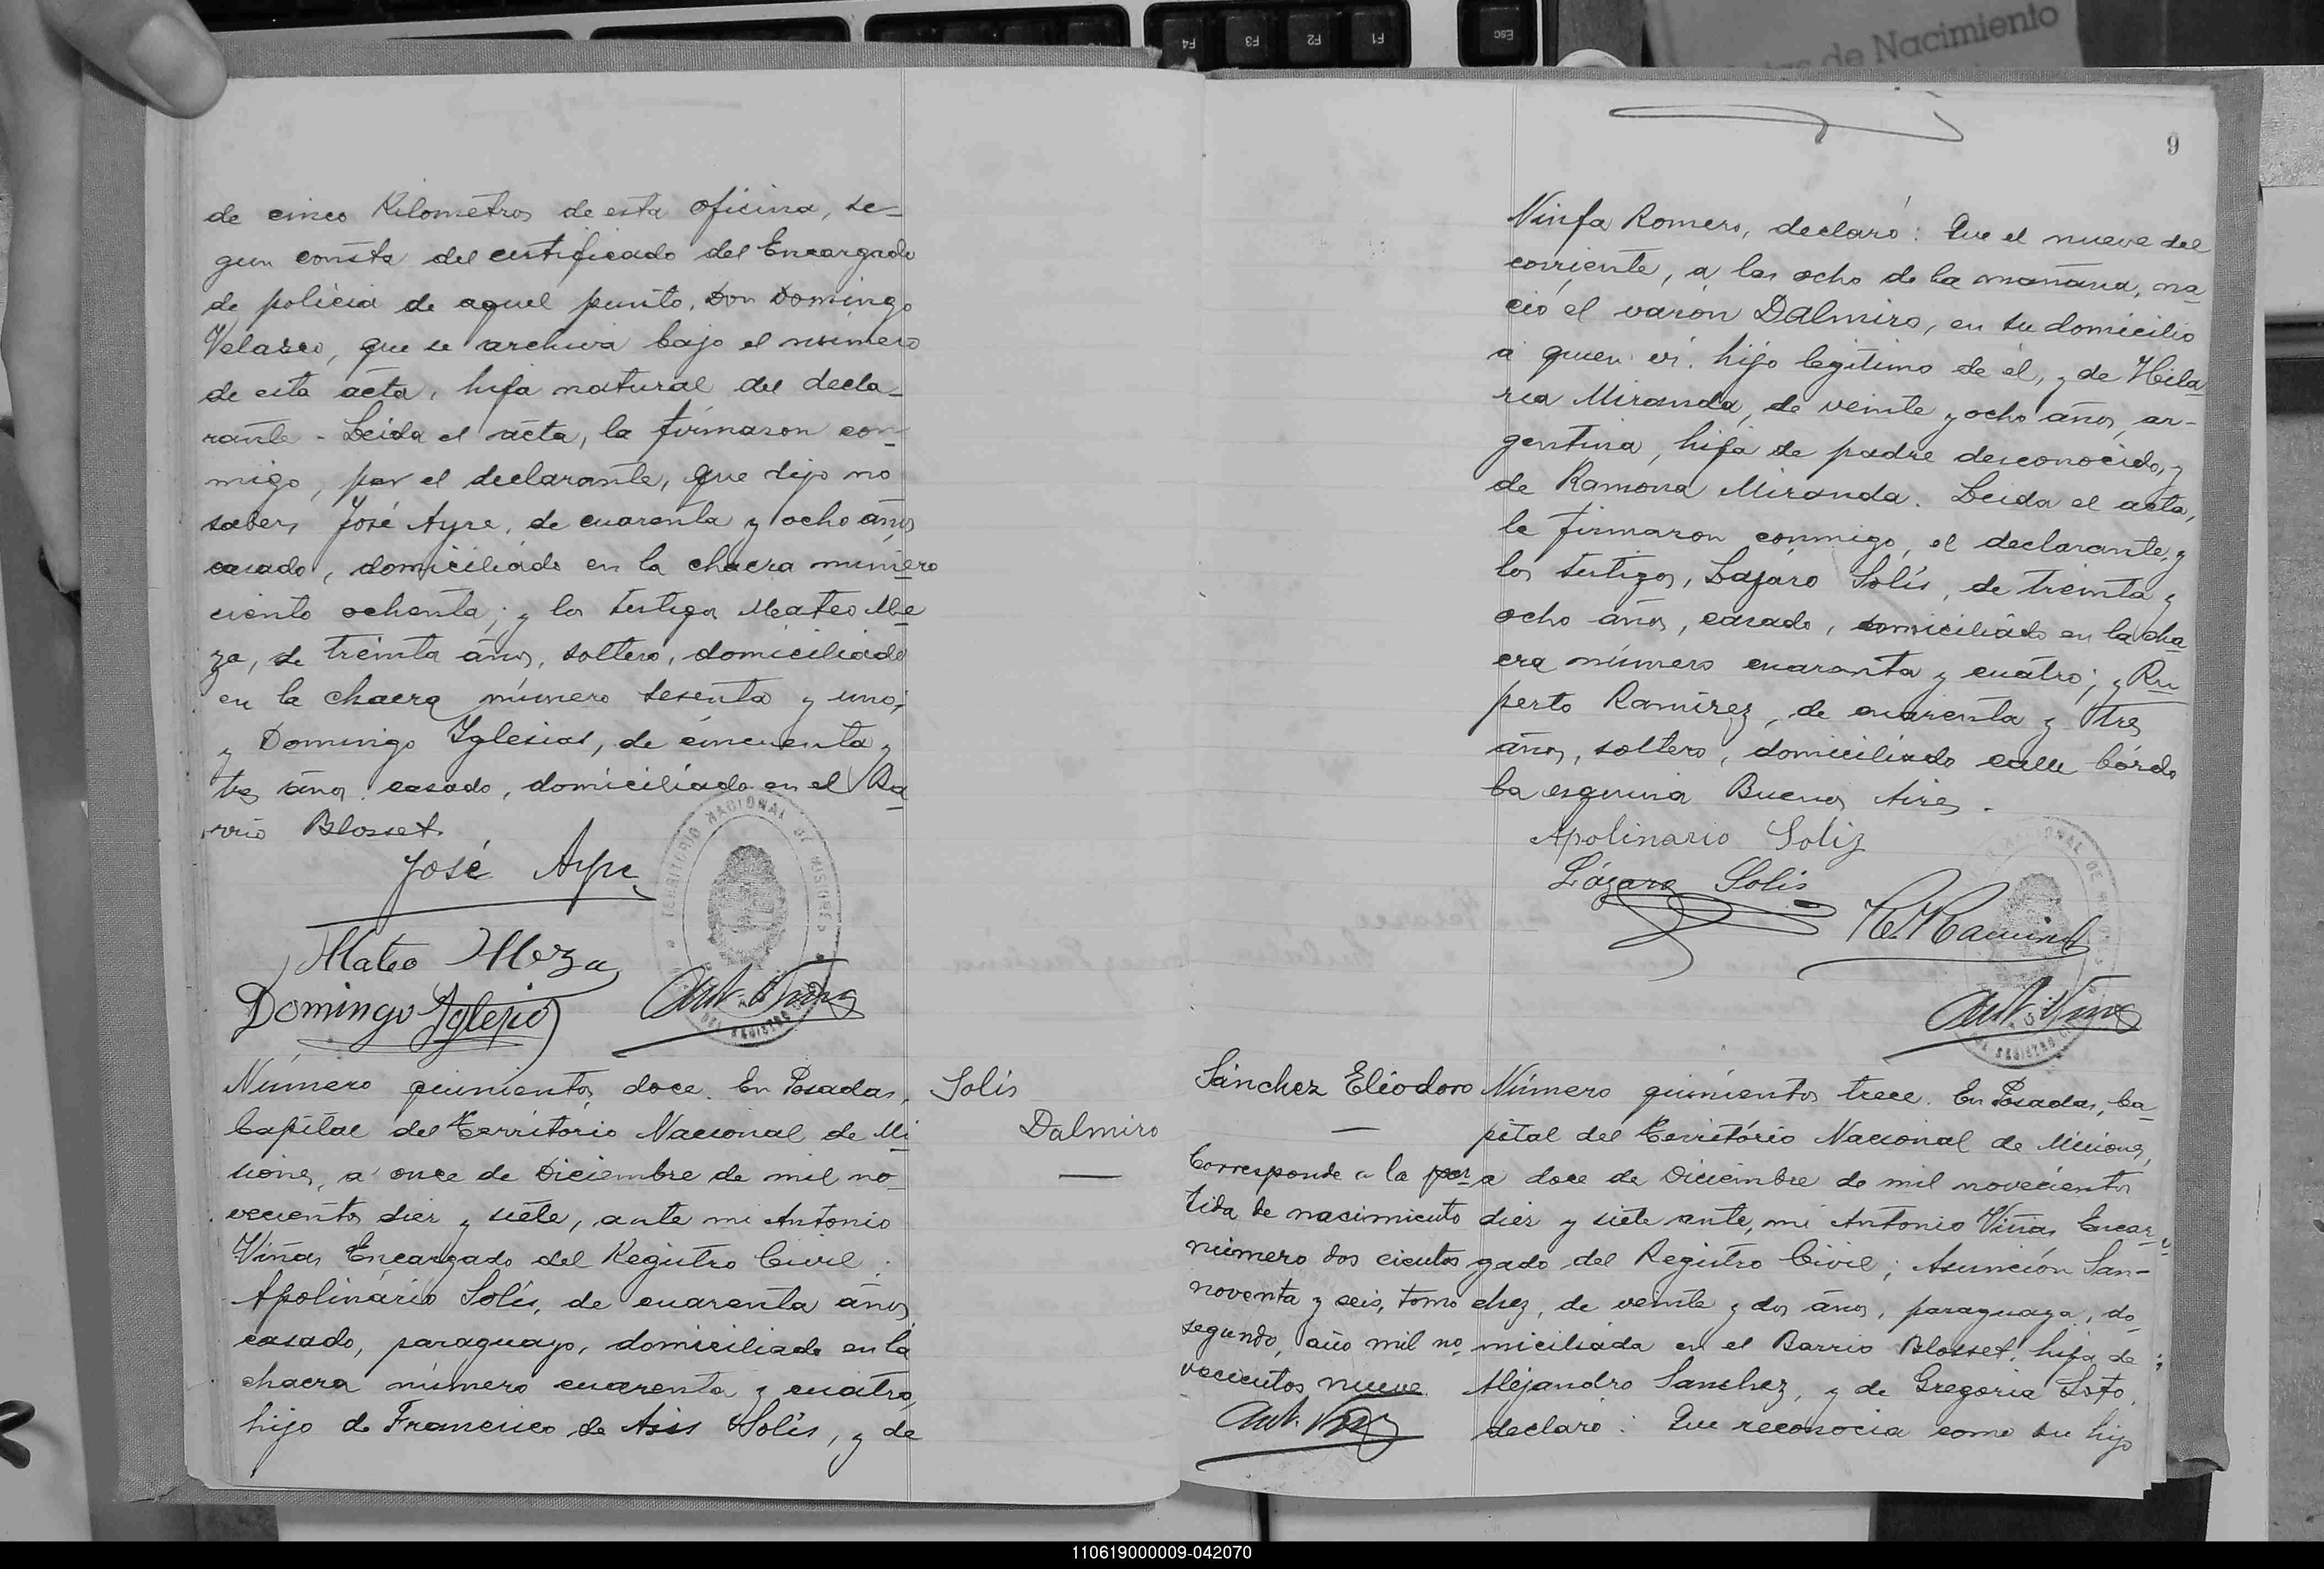 de cinco Kilometros de esta oficina, se-
gun consta del certificado del Encargado
de policia de aquel punto, Don Domingo
Velasco, que se archiva bajo el número
de esta acta, hija natural del decla-
rante - Leida el acta, la firmaron con-
migo, por el declarante, que dijo no
saber, José Ayre, de cuarenta y ocho años
casado, domiciliado en la chacra número
ciento ochenta; y los testigos Mateo Me
za, de treinta años, soltero, domiciliado
en la chacra número sesenta y uno;
y Domingo Iglesias, de cincuenta y
tres años casado, domiciliado en el Ba
rrio Blosset.
José Ayre
Mateo Meza
Domingo Iglesio
Ant. Viñas
TERRITORIO NACIONAL DE MISIONES
DEL REGISTRO
Número quinientos doce. En Posadas,
Capital del Territorio Nacional de Mi
siones, a once de Diciembre de mil no-
vecientos diez y siete, ante mi Antonio
Viñas Encargado del Registro Civil
Apolinario Solís, de cuarenta años
casado, paraguayo, domiciliado en la
chacra número cuarenta y cuatro,
hijo de Francisco de Asis Solís, y de
Solís
Dalmiro
9
Ninfa Romero, declaró: Que el nueve del
corriente, a las ocho de la mañana, na
ció el varón Dalmiro, en su domicilio
a quien vi. hijo legitimo de él, y de Hila
ria Miranda, de veinte y ocho años, ar-
gentina, hija de padre desconocido, y
de Ramona Miranda. Leida el acta,
la firmaron conmigo, el declarante, y
los testigos, Lázaro Solís, de treinta y
ocho años, casado, domiciliado en la cha
cra número cuarenta y cuatro; y Ru
perto Ramírez, de cuarenta y tres
años, soltero, domiciliado calle Córdo
ba esquina Buenos Aires.
Apolinario Soliz
Lázaro Solis
R. Ramirez
Ant. Viñas
Sánchez Eliodoro
Corresponde a la par
tida de nacimiento
número dos cientos
noventa y seis, tomo
segundo, año mil no
vecientos nueve
Ant. Viñas
Número quinientos trece. En Posadas, Ca
pital del Territorio Nacional de Misiones,
a doce de Diciembre de mil novecientos
diez y siete ante, mi Antonio Viñas Encar
gado del Registro Civil; Asunción San-
chez, de veinte y dos años, paraguaya, do
miciliada en el Barrio Blosset, hija de
Alejandro Sanchez, y de Gregoria Soto,
declaró: Que reconocia como su hijo
Actas de Nacimiento
F4 F3 F2 F1 Esc
110619000009-042070